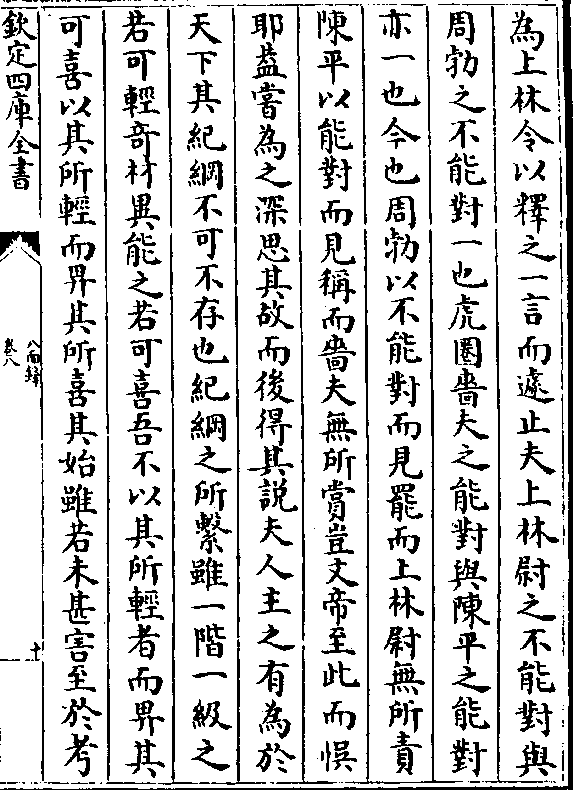 為上林令以釋之一言而遽止夫上林尉之不能對與
周勃之不能對一也虎圈嗇夫之能對與陳平之能對
亦一也今也周勃以不能對而見罷而上林尉無所責
陳平以能對而見稱而嗇夫無所賞豈文帝至此而悞
耶葢嘗為之深思其故而後得其説夫人主之有為於
天下其紀綱不可不存也紀綱之所繫雖一階一級之
若可輕奇材異能之若可喜吾不以其所輕者而畀其
可喜以其所輕而畀其所喜其始雖若未甚害至於考
欽定四庫全書
八面鋒
卷八
十